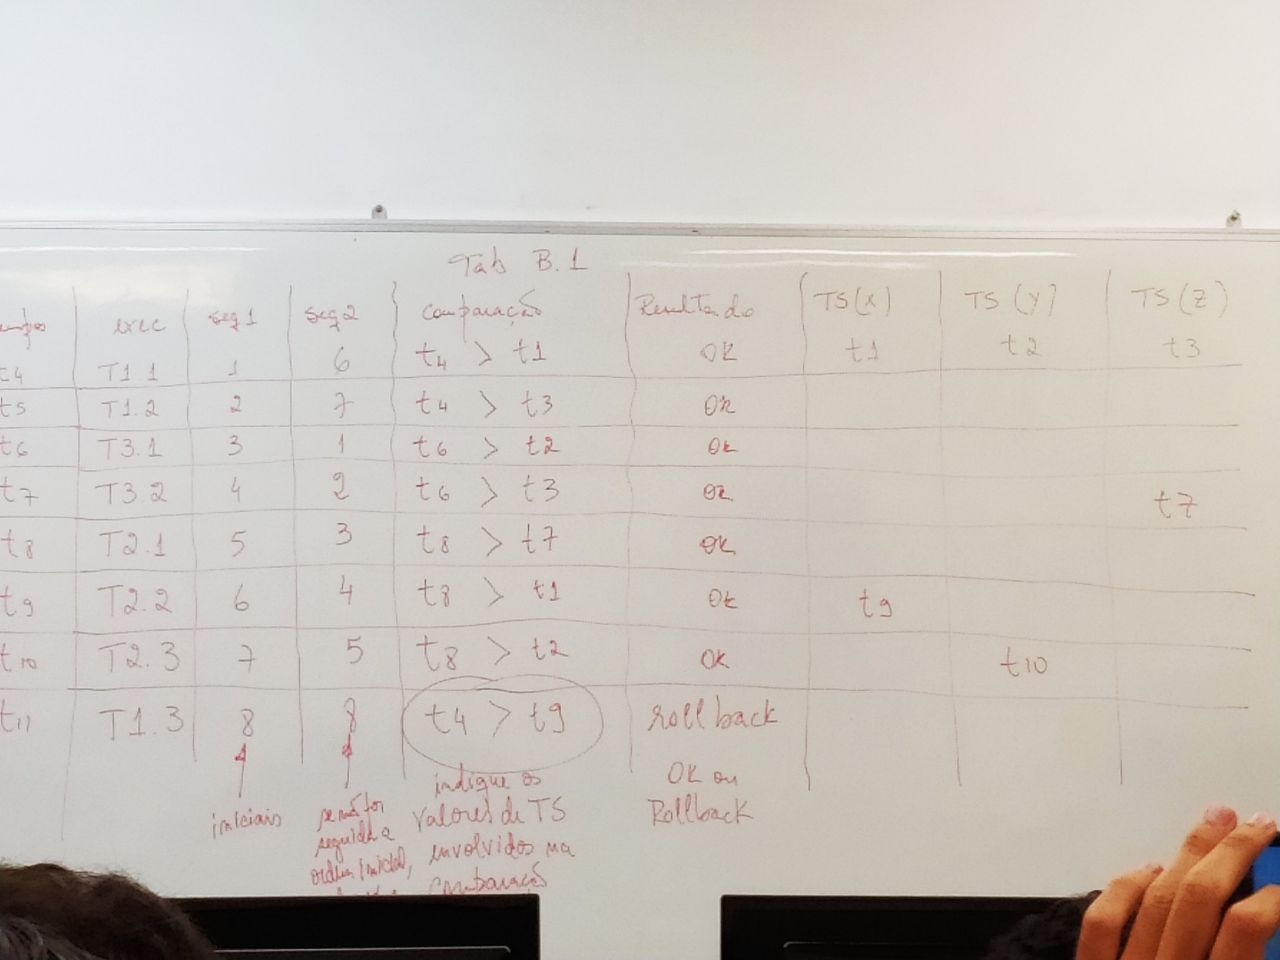 Tab B.1
exec seq 1 seq 2 comparação Resultado TS(X) TS(Y) TS(Z)
t4 T1.1 1 6 t4 > t1 OK t1 t2 t3
t5 T1.2 2 7 t4 > t3 OK
t6 T3.1 3 1 t6 > t2 Ok
t7 T3.2 4 2 t6 > t3 OK t7
t8 T2.1 5 3 t8 > t7 OK
t9 T2.2 6 4 t8 > t1 Ok t9
t10 T2.3 7 5 t8 > t2 OK t10
t11 T1.3 8 8 t4 > t9 rollback
iniciais
se não for
seguida a
ordem inicial,
indique os
valores de TS
envolvidos na
comparação
OK ou
Rollback